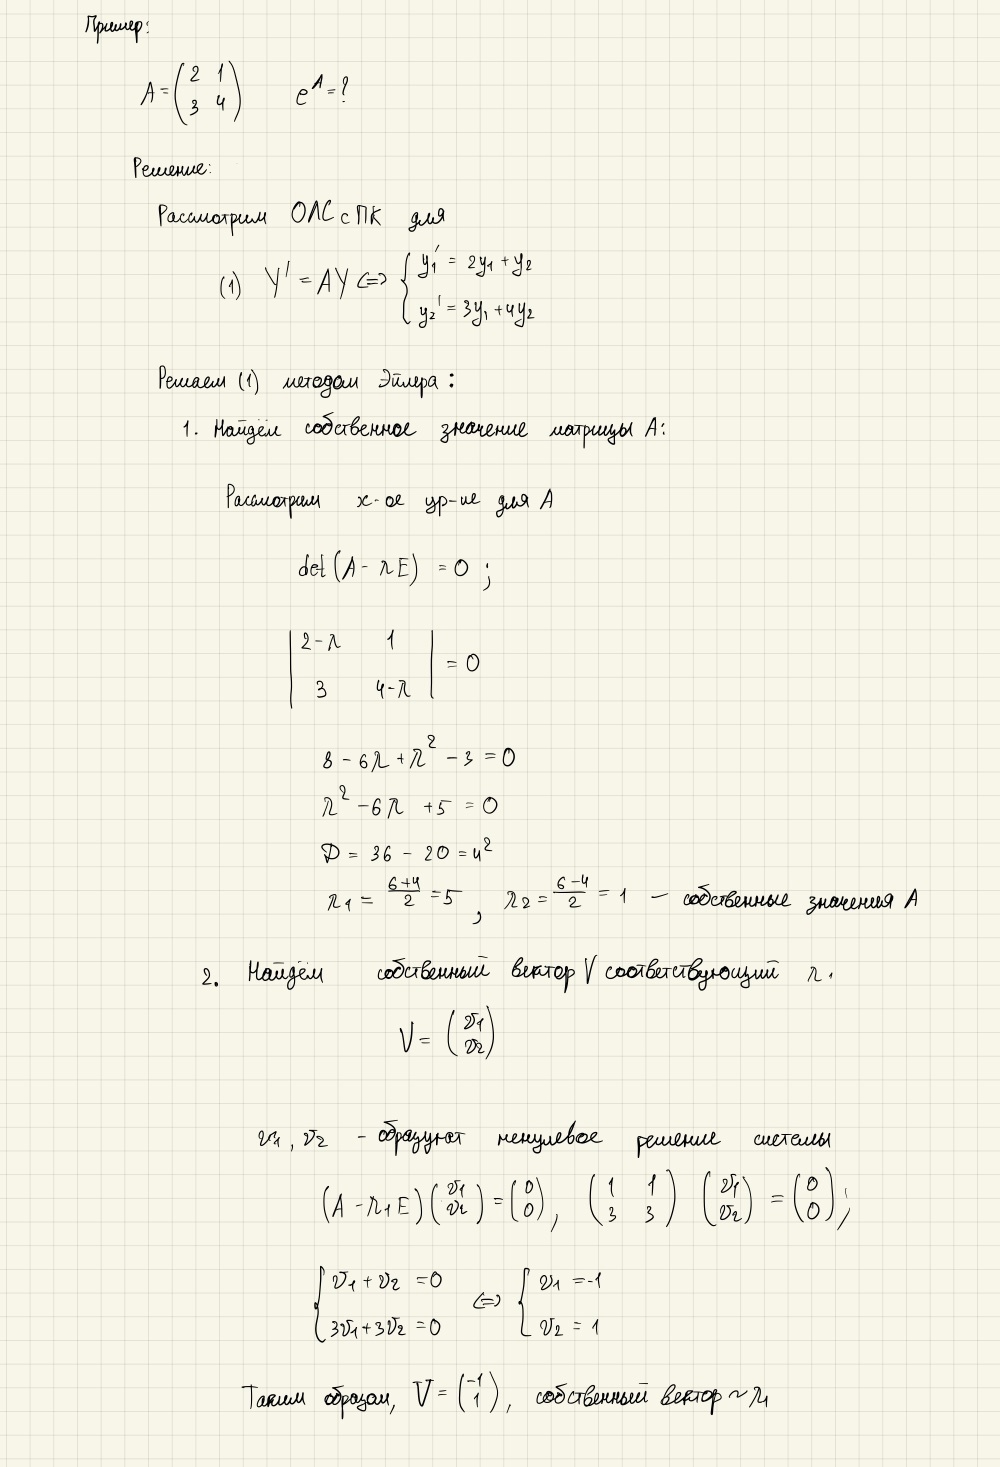 Пример:
A = (2 1; 3 4)    e^A = ?
Решение:
Рассмотрим ОЛС с ПК для
(1) Y' = AY <=> { y₁' = 2y₁ + y₂
y₂' = 3y₁ + 4y₂
Решаем (1) методом Эйлера:
1. Найдём собственное значение матрицы A:
Рассмотрим х-ое ур-ие для A
det(A - λE) = 0;
|2-λ 1; 3 4-λ| = 0
8 - 6λ + λ² - 3 = 0
λ² - 6λ + 5 = 0
D = 36 - 20 = 4²
λ₁ = (6+4)/2 = 5, λ₂ = (6-4)/2 = 1 — собственные значения A
2. Найдём собственный вектор V соответствующий λ.
V = (v₁; v₂)
v₁, v₂ - образуют ненулевое решение системы
(A - λ₁E)(v₁; v₂) = (0; 0), (1 1; 3 3)(v₁; v₂) = (0; 0);
{ v₁ + v₂ = 0 <=> { v₁ = -1
3v₁ + 3v₂ = 0    v₂ = 1
Таким образом, V = (-1; 1), собственный вектор ~ λ₁